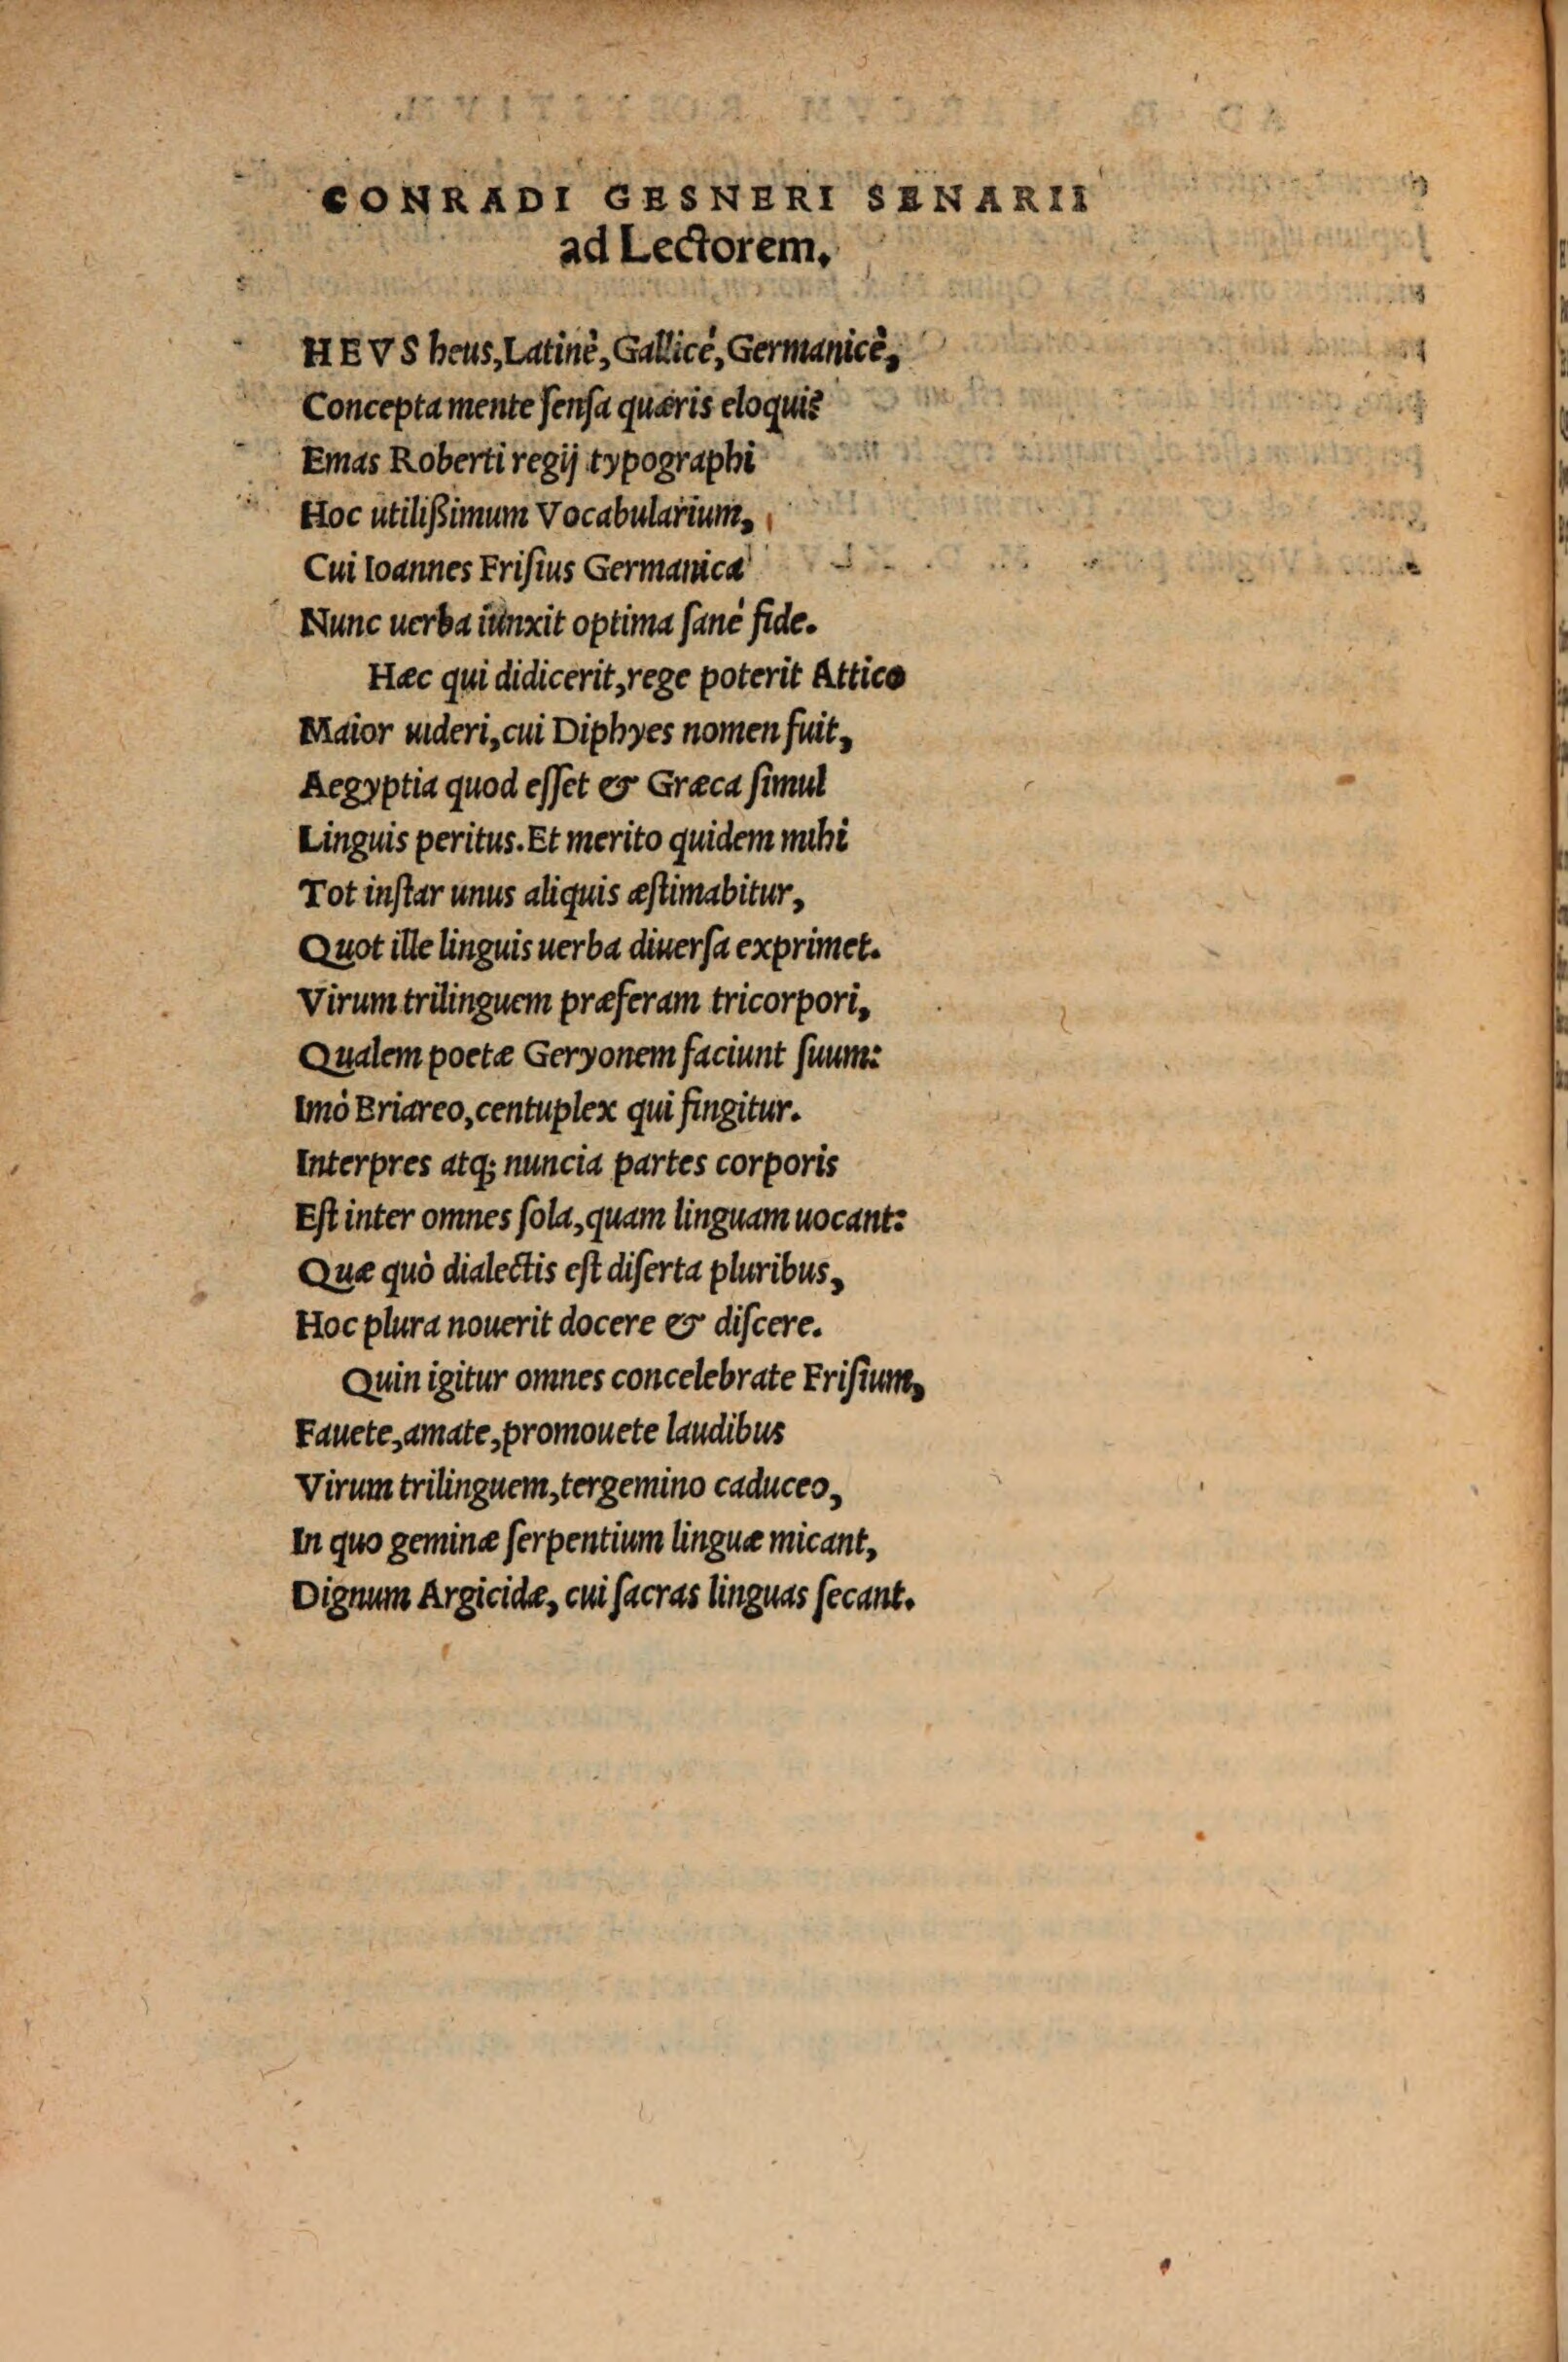 CONRADI GESNERI SENARII
ad Lectorem.
HEVS heus, Latinè, Gallicé, Germanicè,
Concepta mente ſenſa quæris eloqui?
Emas Roberti regij typographi
Hoc utilißimum Vocabularium,
Cui Ioannes Friſius Germanica
Nunc uerba iunxit optima ſanè fide.
Hæc qui didicerit, rege poterit Attico
Maior uideri, cui Diphyes nomen fuit,
Aegyptia quod eſſet & Græca ſimul
Linguis peritus. Et merito quidem mihi
Tot inſtar unus aliquis æſtimabitur,
Quot ille linguis uerba diuerſa exprimet.
Virum trilinguem præferam tricorpori,
Qualem poetæ Geryonem faciunt ſuum:
Imò Briareo, centuplex qui fingitur.
Interpres atq; nuncia partes corporis
Eſt inter omnes ſola, quam linguam uocant:
Quæ quò dialectis eſt diſerta pluribus,
Hoc plura nouerit docere & diſcere.
Quin igitur omnes concelebrate Friſium,
Fauete, amate, promouete laudibus
Virum trilinguem, tergemino caduceo,
In quo geminæ ſerpentium linguæ micant,
Dignum Argicidæ, cui ſacras linguas ſecant.